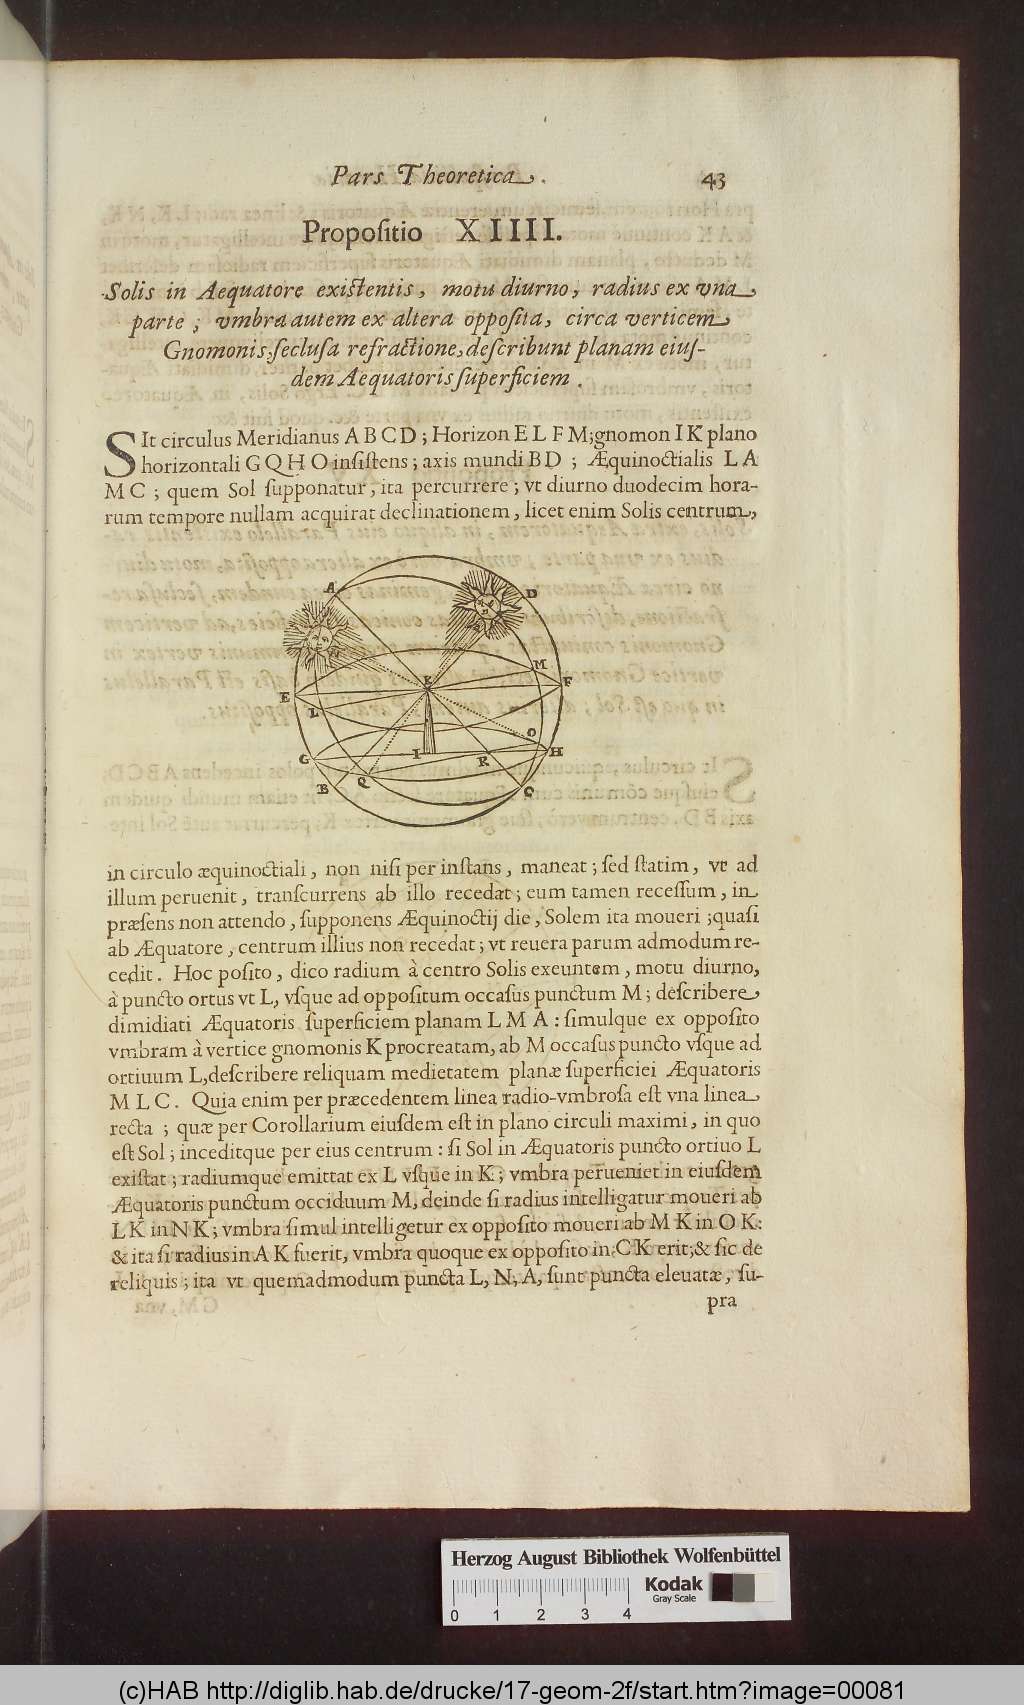 Pars Theoretica. 43
Propositio XIIII.
Solis in Aequatore existentis, motu diurno, radius ex vna
parte, vmbra autem ex altera opposita, circa verticem
Gnomonis, seclusa refractione, describunt planam eius-
dem Aequatoris superficiem.
SIt circulus Meridianus A B C D; Horizon E L F M; gnomon I K plano
horizontali G Q H O insistens; axis mundi B D; Æquinoctialis L A
M C; quem Sol supponatur, ita percurrere; vt diurno duodecim hora-
rum tempore nullam acquirat declinationem, licet enim Solis centrum,
A
D
N
E
L
K
M
F
G
I
R
O
H
B
Q
C
in circulo æquinoctiali, non nisi per instans, maneat; sed statim, vt ad
illum peruenit, transcurrens ab illo recedat; eum tamen recessum, in
præsens non attendo, supponens Æquinoctij die, Solem ita moueri; quasi
ab Æquatore, centrum illius non recedat; vt reuera parum admodum re-
cedit. Hoc posito, dico radium à centro Solis exeuntem, motu diurno,
à puncto ortus vt L, vsque ad oppositum occasus punctum M; describere
dimidiati Æquatoris superficiem planam L M A: simulque ex opposito
vmbram à vertice gnomonis K procreatam, ab M occasus puncto vsque ad
ortiuum L, describere reliquam medietatem planæ superficiei Æquatoris
M L C. Quia enim per præcedentem linea radio-vmbrosa est vna linea
recta; quæ per Corollarium eiusdem est in plano circuli maximi, in quo
est Sol; inceditque per eius centrum: si Sol in Æquatoris puncto ortiuo L
existat; radiumque emittat ex L vsque in K; vmbra perueniet in eiusdem
Æquatoris punctum occiduum M, deinde si radius intelligatur moueri ab
L K in N K; vmbra simul intelligetur ex opposito moueri ab M K in O K:
& ita si radius in A K fuerit, vmbra quoque ex opposito in C K erit; & sic de
reliquis; ita vt quemadmodum puncta L, N, A, sunt puncta eleuatæ, su-
pra
Herzog August Bibliothek Wolfenbüttel
Kodak
Gray Scale
0 1 2 3 4
(c)HAB http://diglib.hab.de/drucke/17-geom-2f/start.htm?image=00081